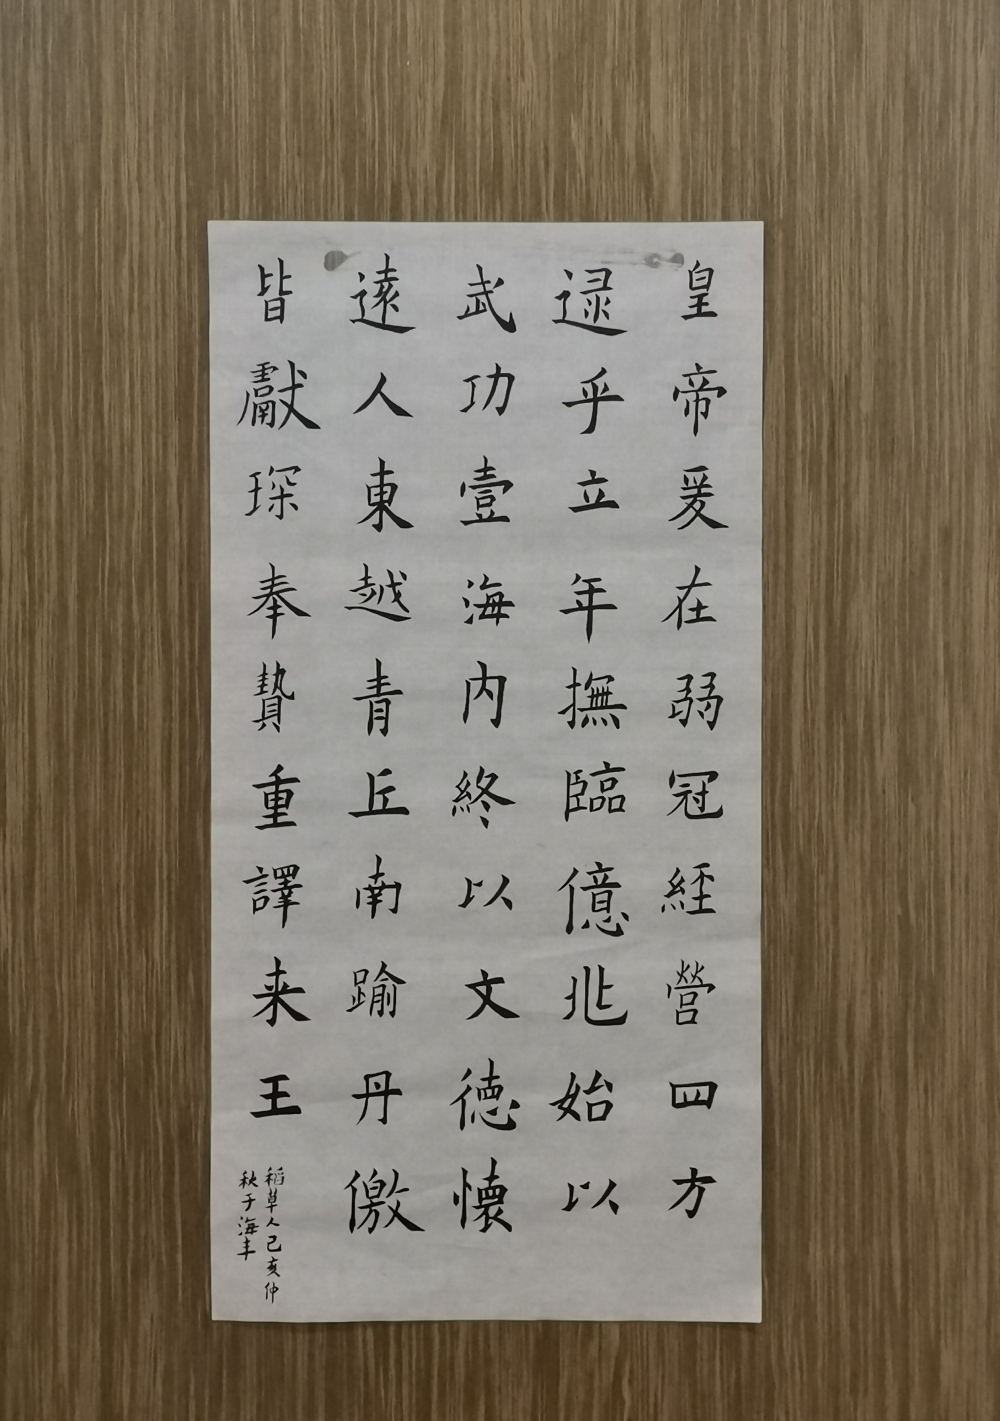 皇帝爰在弱冠經營四方
逯乎立年撫臨億兆始以
武功壹海内終以文德懷
遠人東越青丘南踰丹儌
皆獻琛奉贄重譯来王
稻草人己亥仲
秋于海丰